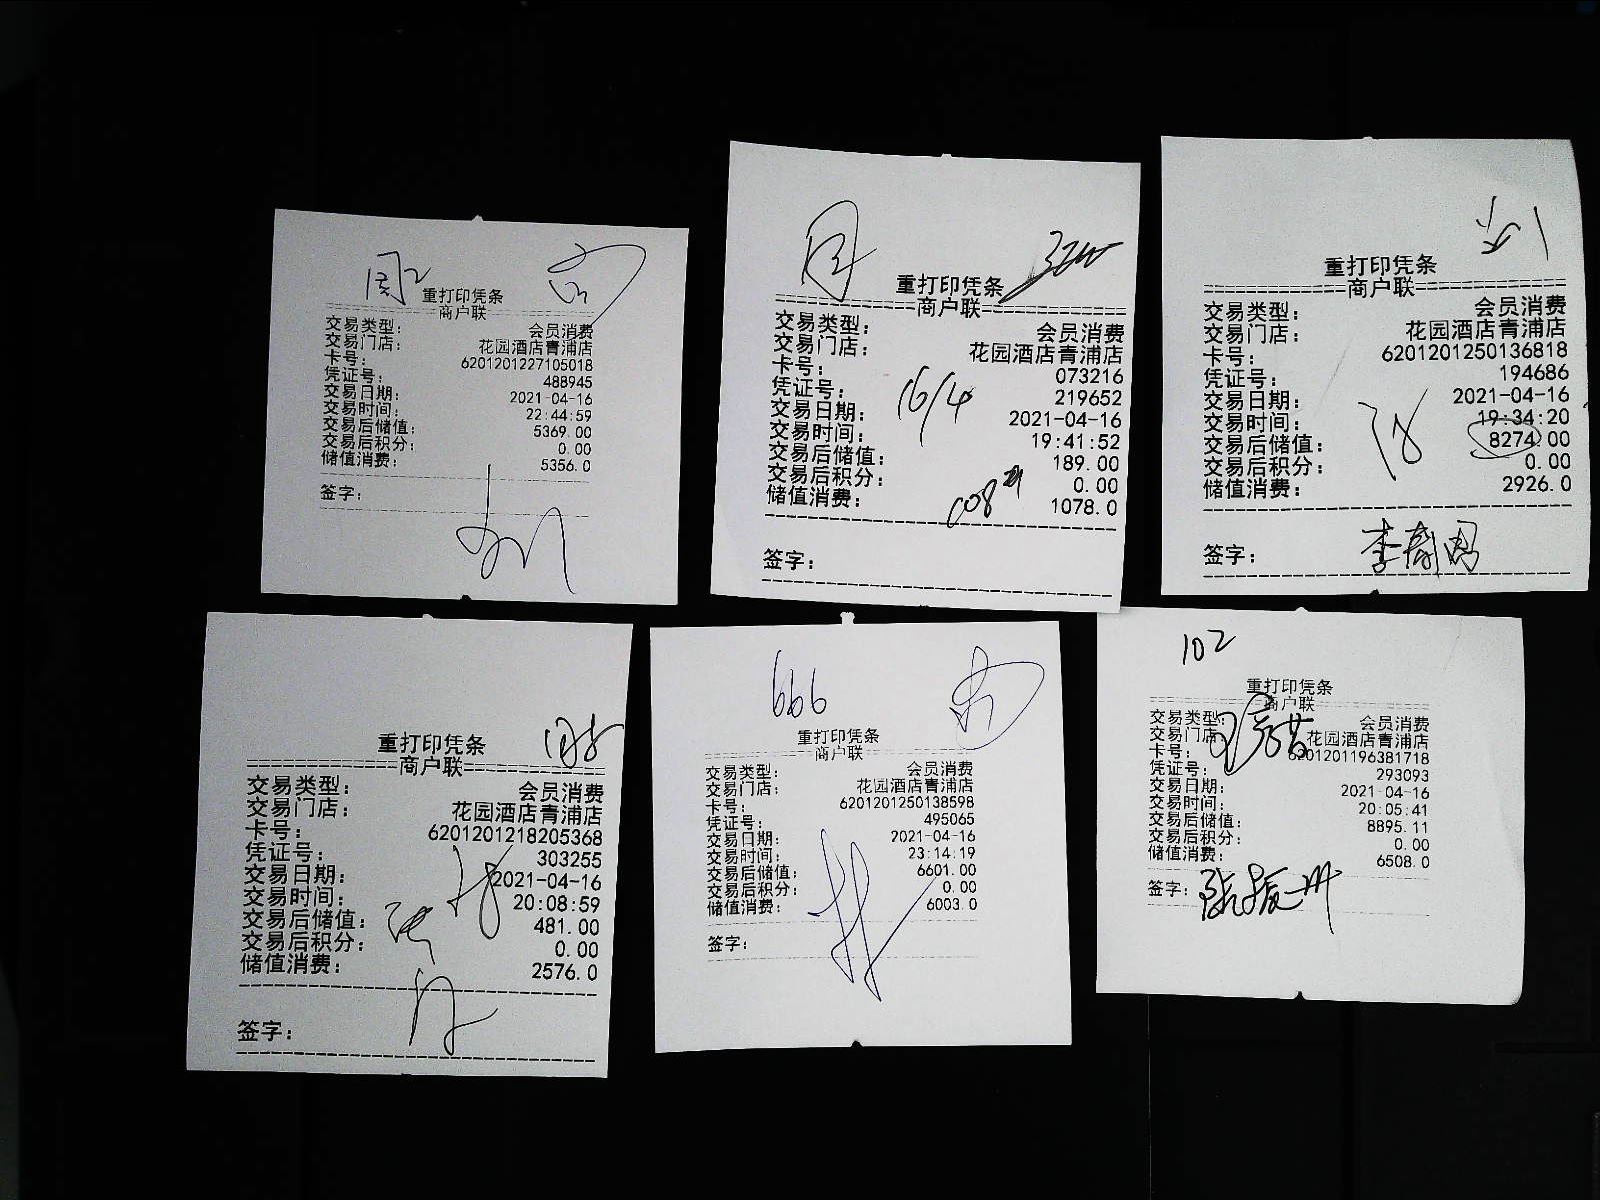 重打印凭条
商户联
交易类型: 会员消费
交易门店: 花园酒店青浦店
卡号: 6201201227105018
凭证号: 488945
交易日期: 2021-04-16
交易时间: 22:44:59
交易后储值: 5369.00
交易后积分: 0.00
储值消费: 5356.0
签字:
重打印凭条
商户联
交易类型: 会员消费
交易门店: 花园酒店青浦店
卡号: 073216
凭证号: 219652
交易日期: 2021-04-16
16/4
交易时间: 19:41:52
交易后储值: 189.00
交易后积分: 0.00
储值消费: 1078.0
签字:
重打印凭条
商户联
交易类型: 会员消费
交易门店: 花园酒店青浦店
卡号: 6201201250136818
凭证号: 194686
交易日期: 2021-04-16
交易时间: 19:34:20
交易后储值: 8274.00
交易后积分: 0.00
储值消费: 2926.0
签字:
重打印凭条
商户联
交易类型: 会员消费
交易门店: 花园酒店青浦店
卡号: 6201201218205368
凭证号: 303255
交易日期: 2021-04-16
交易时间: 20:08:59
交易后储值: 481.00
交易后积分: 0.00
储值消费: 2576.0
签字:
666
重打印凭条
商户联
交易类型: 会员消费
交易门店: 花园酒店青浦店
卡号: 6201201250138598
凭证号: 495065
交易日期: 2021-04-16
交易时间: 23:14:19
交易后储值: 6601.00
交易后积分: 0.00
储值消费: 6003.0
签字:
102
重打印凭条
商户联
交易类型: 会员消费
交易门店: 花园酒店青浦店
卡号: 6201201196381718
凭证号: 293093
交易日期: 2021-04-16
交易时间: 20:05:41
交易后储值: 8895.11
交易后积分: 0.00
储值消费: 6508.0
签字: